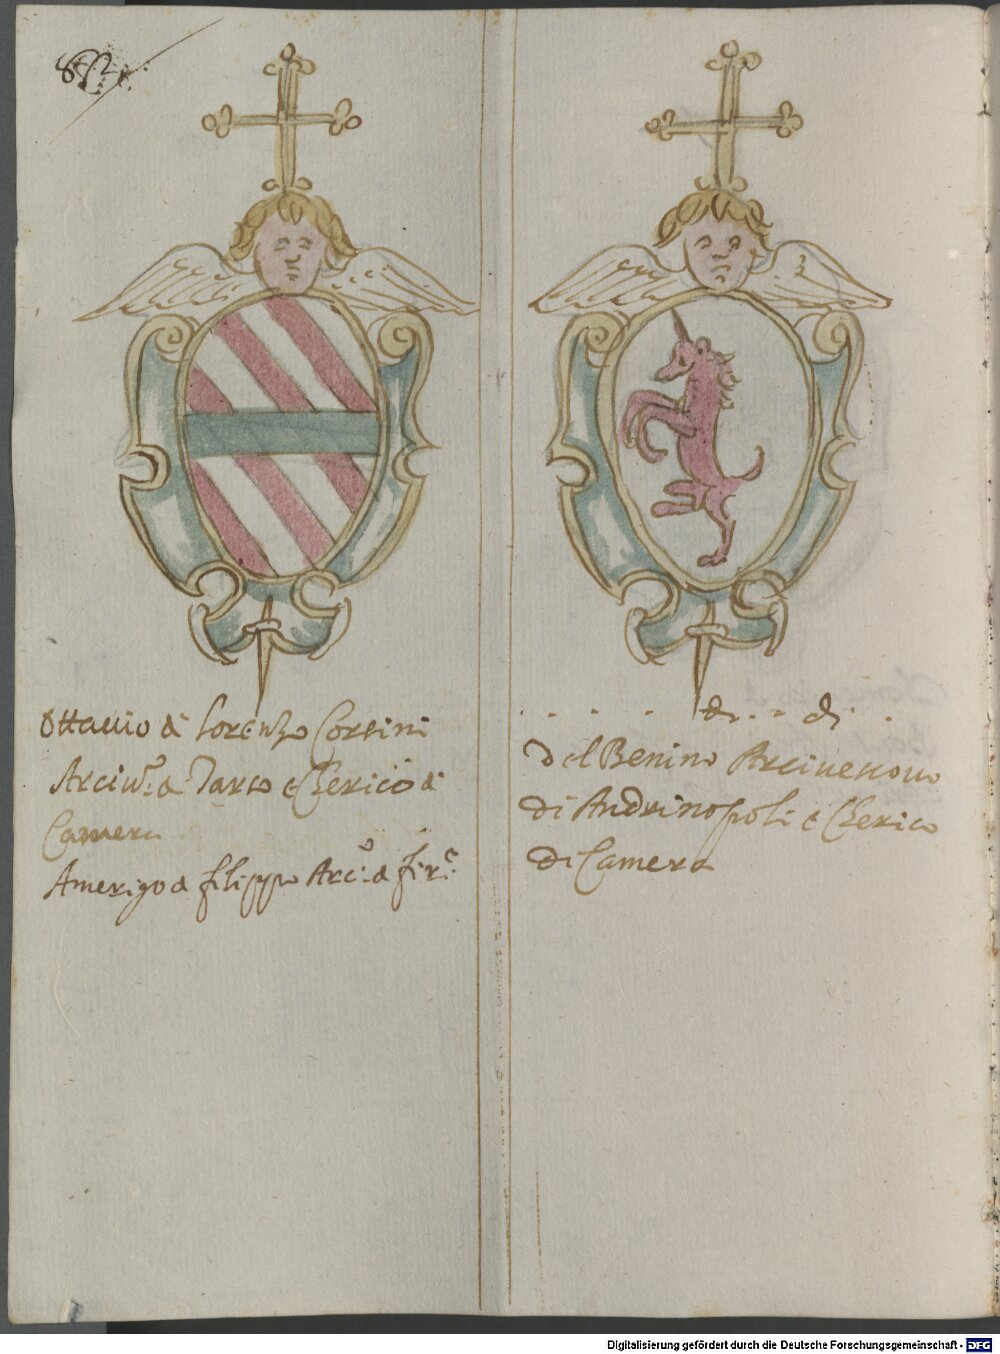 Ottauio di Lorenzo Corsini
Arciu.o di Tarso e Cherico di
Camera
Amerigo di filippo Arc.o di fir.e
. . . . . di . . . di . .
Del Benino Arciuescouo
di Andrinopoli e Cherico
di Camera
Digitalisierung gefördert durch die Deutsche Forschungsgemeinschaft - DFG